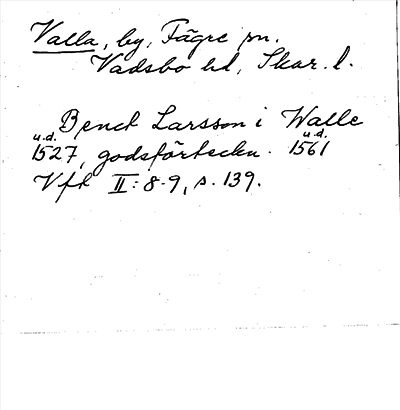 Valla, by, Fägre sn.
Vadsbo hd, Skar. l.
Benct Larsson i Walle
u.d. u.d.
1527, godsförteckn. 1561
Vfk II: 8-9, s. 139.